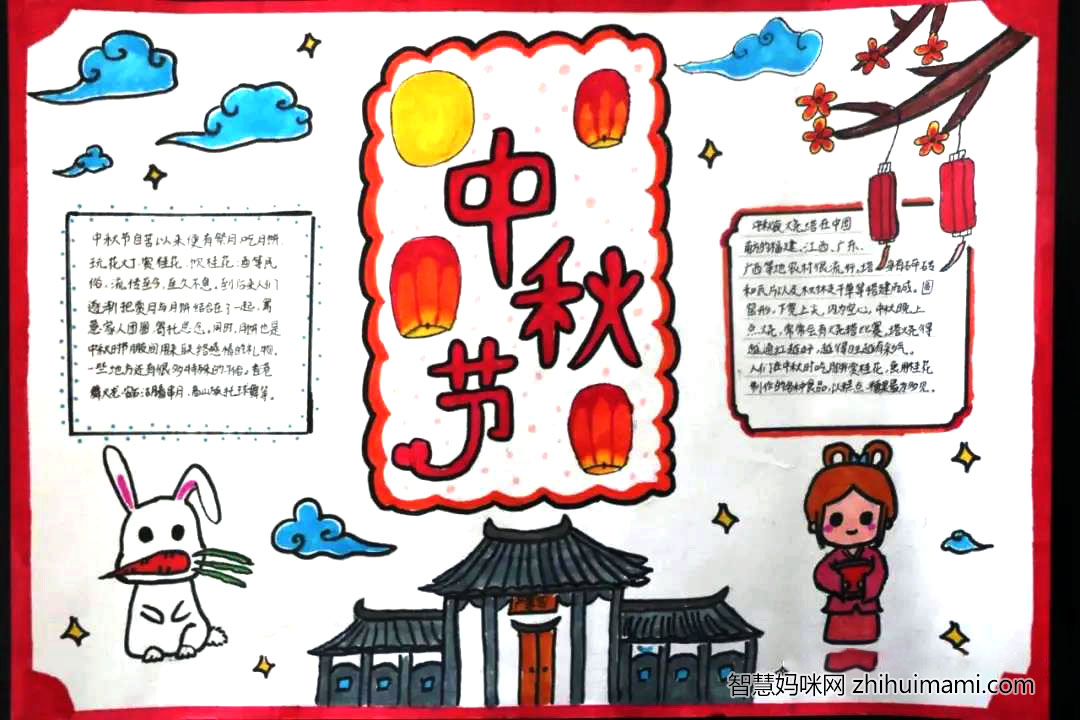 中秋节
中秋节自古以来便有祭月、吃月饼、
玩花灯、赏桂花、饮桂花酒等民
俗,流传至今,经久不息。到后来人们
逐渐把赏月与月饼结合在了一起,寓
意家人团圆,寄托思念。同时,月饼也是
中秋时节朋友间用来联络感情的礼物。
一些地方还有很多特殊的习俗,香港
舞火龙
中秋夜烧塔在中国
的福建、江西、广东、
广西等地农村很流行。塔
和瓦片以及秋休 简单搭建而成。圆
下宽上尖,内为空心。中秋晚上
点火,常常会有烧塔比赛,塔烧得
越通红越好,越得旺越有
人们在中秋时吃月饼赏桂花,食用桂花
制作的各种食品,以糕点、糖果最为多见。
智慧妈咪网 zhihuimami.com